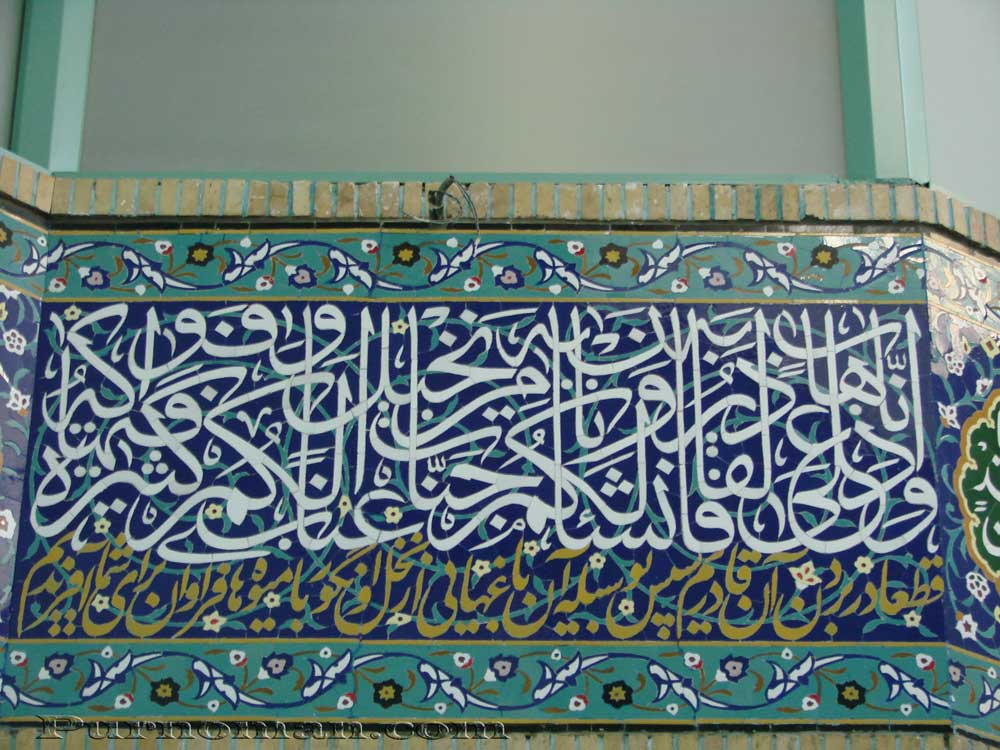 وَإِنَّا عَلَى ذَهَابٍ بِهِ لَقَادِرُونَ فَأَنْشَأْنَا لَكُمْ بِهِ جَنَّاتٍ مِنْ نَخِيلٍ وَأَعْنَابٍ لَكُمْ فِيهَا فَوَاكِهُ كَثِيرَةٌ
قطعا در بردن آن قادریم سپس بوسیله آن باغهایی از نخل و انگور با میوه ها فراوان برای شما آفریدیم
Purnoman.com